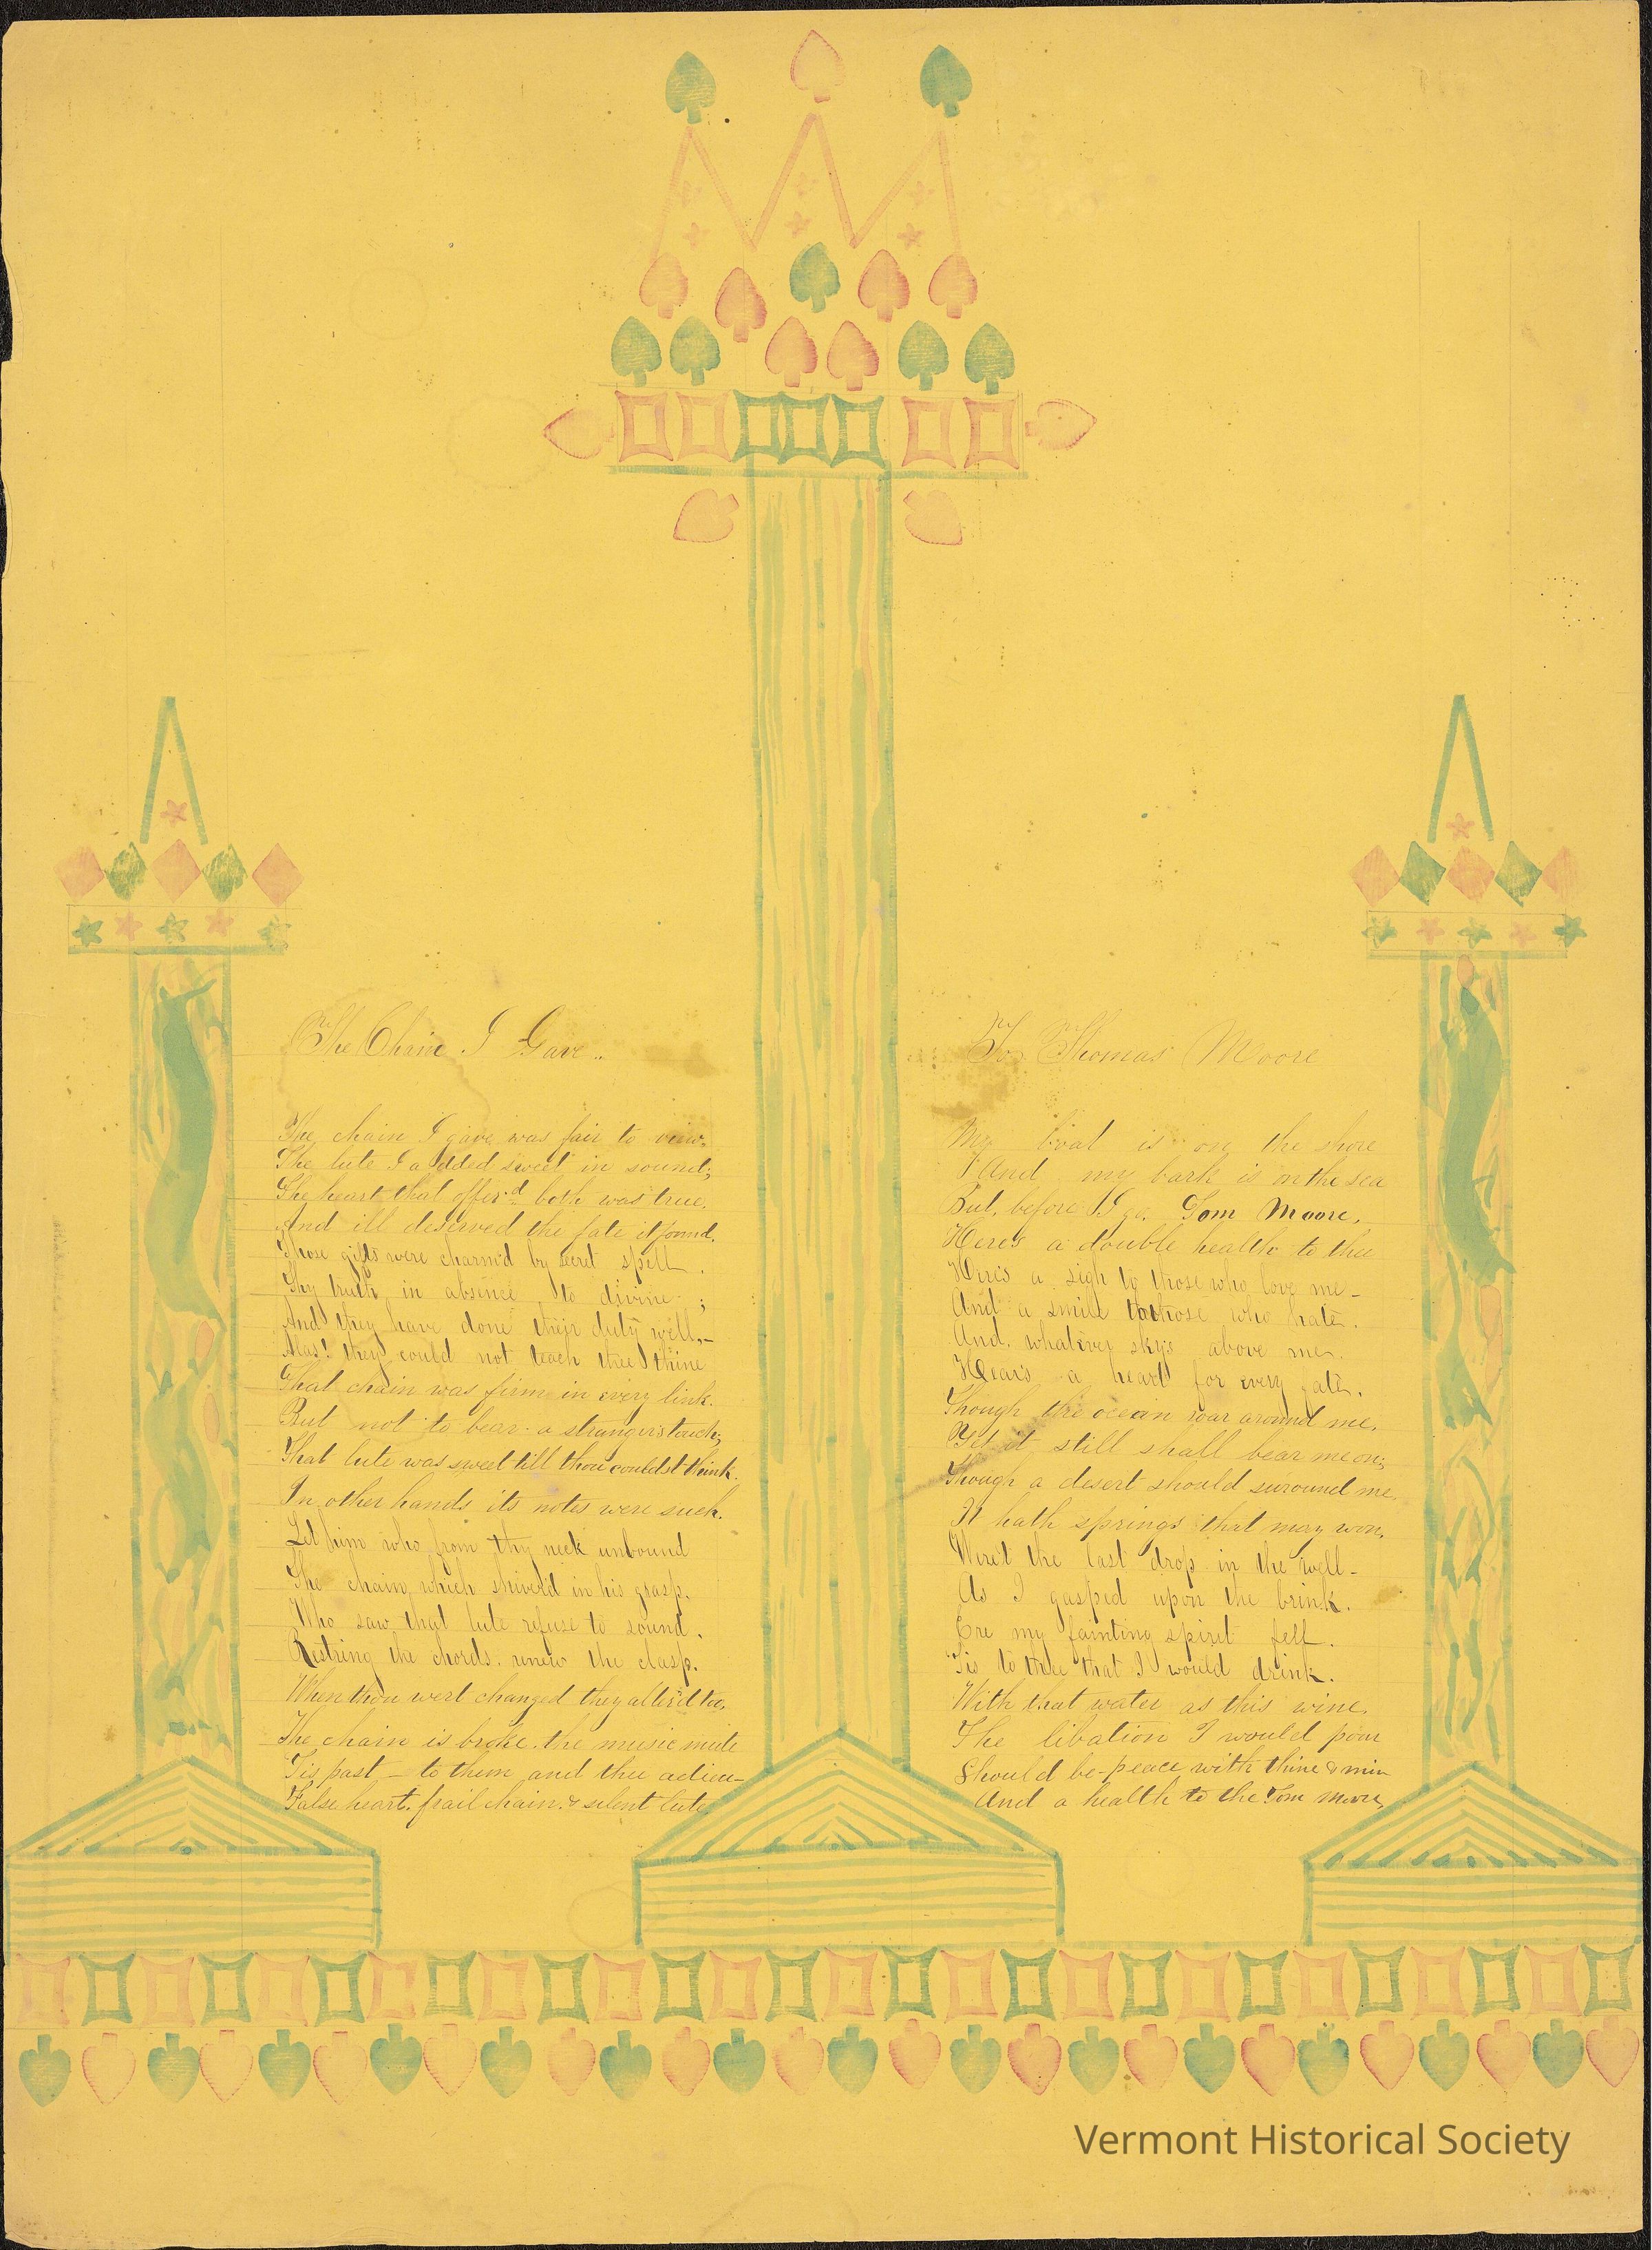 The Chain I Gave..
The chain I gave was fair to veiw.
The lute I added sweet in sound;
The heart that offer'd both was true.
And ill deserved the fate it found.
Those gifts were charm'd by secret spell.
Thy truth in absence to divine;
And they have done their duty well,—
Alas! they could not teach thee thine
That chain was firm in every link.
But not to bear a stranger's touch;
That lute was sweet till thou couldst think.
In other hands its notes were such.
Let him who from thy neck unbound
The chain which shiver'd in his grasp.
Who saw that lute refuse to sound.
Restring the chords. renew the clasp.
When thou wert changed they alter'd too,
The chain is broke. the music mute
Tis past — to them and thee adieu—
False heart. frail chain. & silent lute
To Thomas Moore
My boat is on the shore
And my bark is on the sea
But, before I go. Tom Moore,
Here's a double health to thee
Here's a sigh to those who love me—
And a smile to those who hate.
And. whatever sky's above me.
Hear's a heart for every fate.
Though the ocean roar around me.
Yet it still shall bear me on;
Though a desert should suround me.
It hath springs that may won.
Were't the last drop in the well—
As I gasped upon the brink.
Ere my fainting spirit fell.
'Tis to thee that I would drink.
With that water as this wine.
The libation I would pour
Should be—peace with thine & min
And a health to the Tom Moore,
Vermont Historical Society